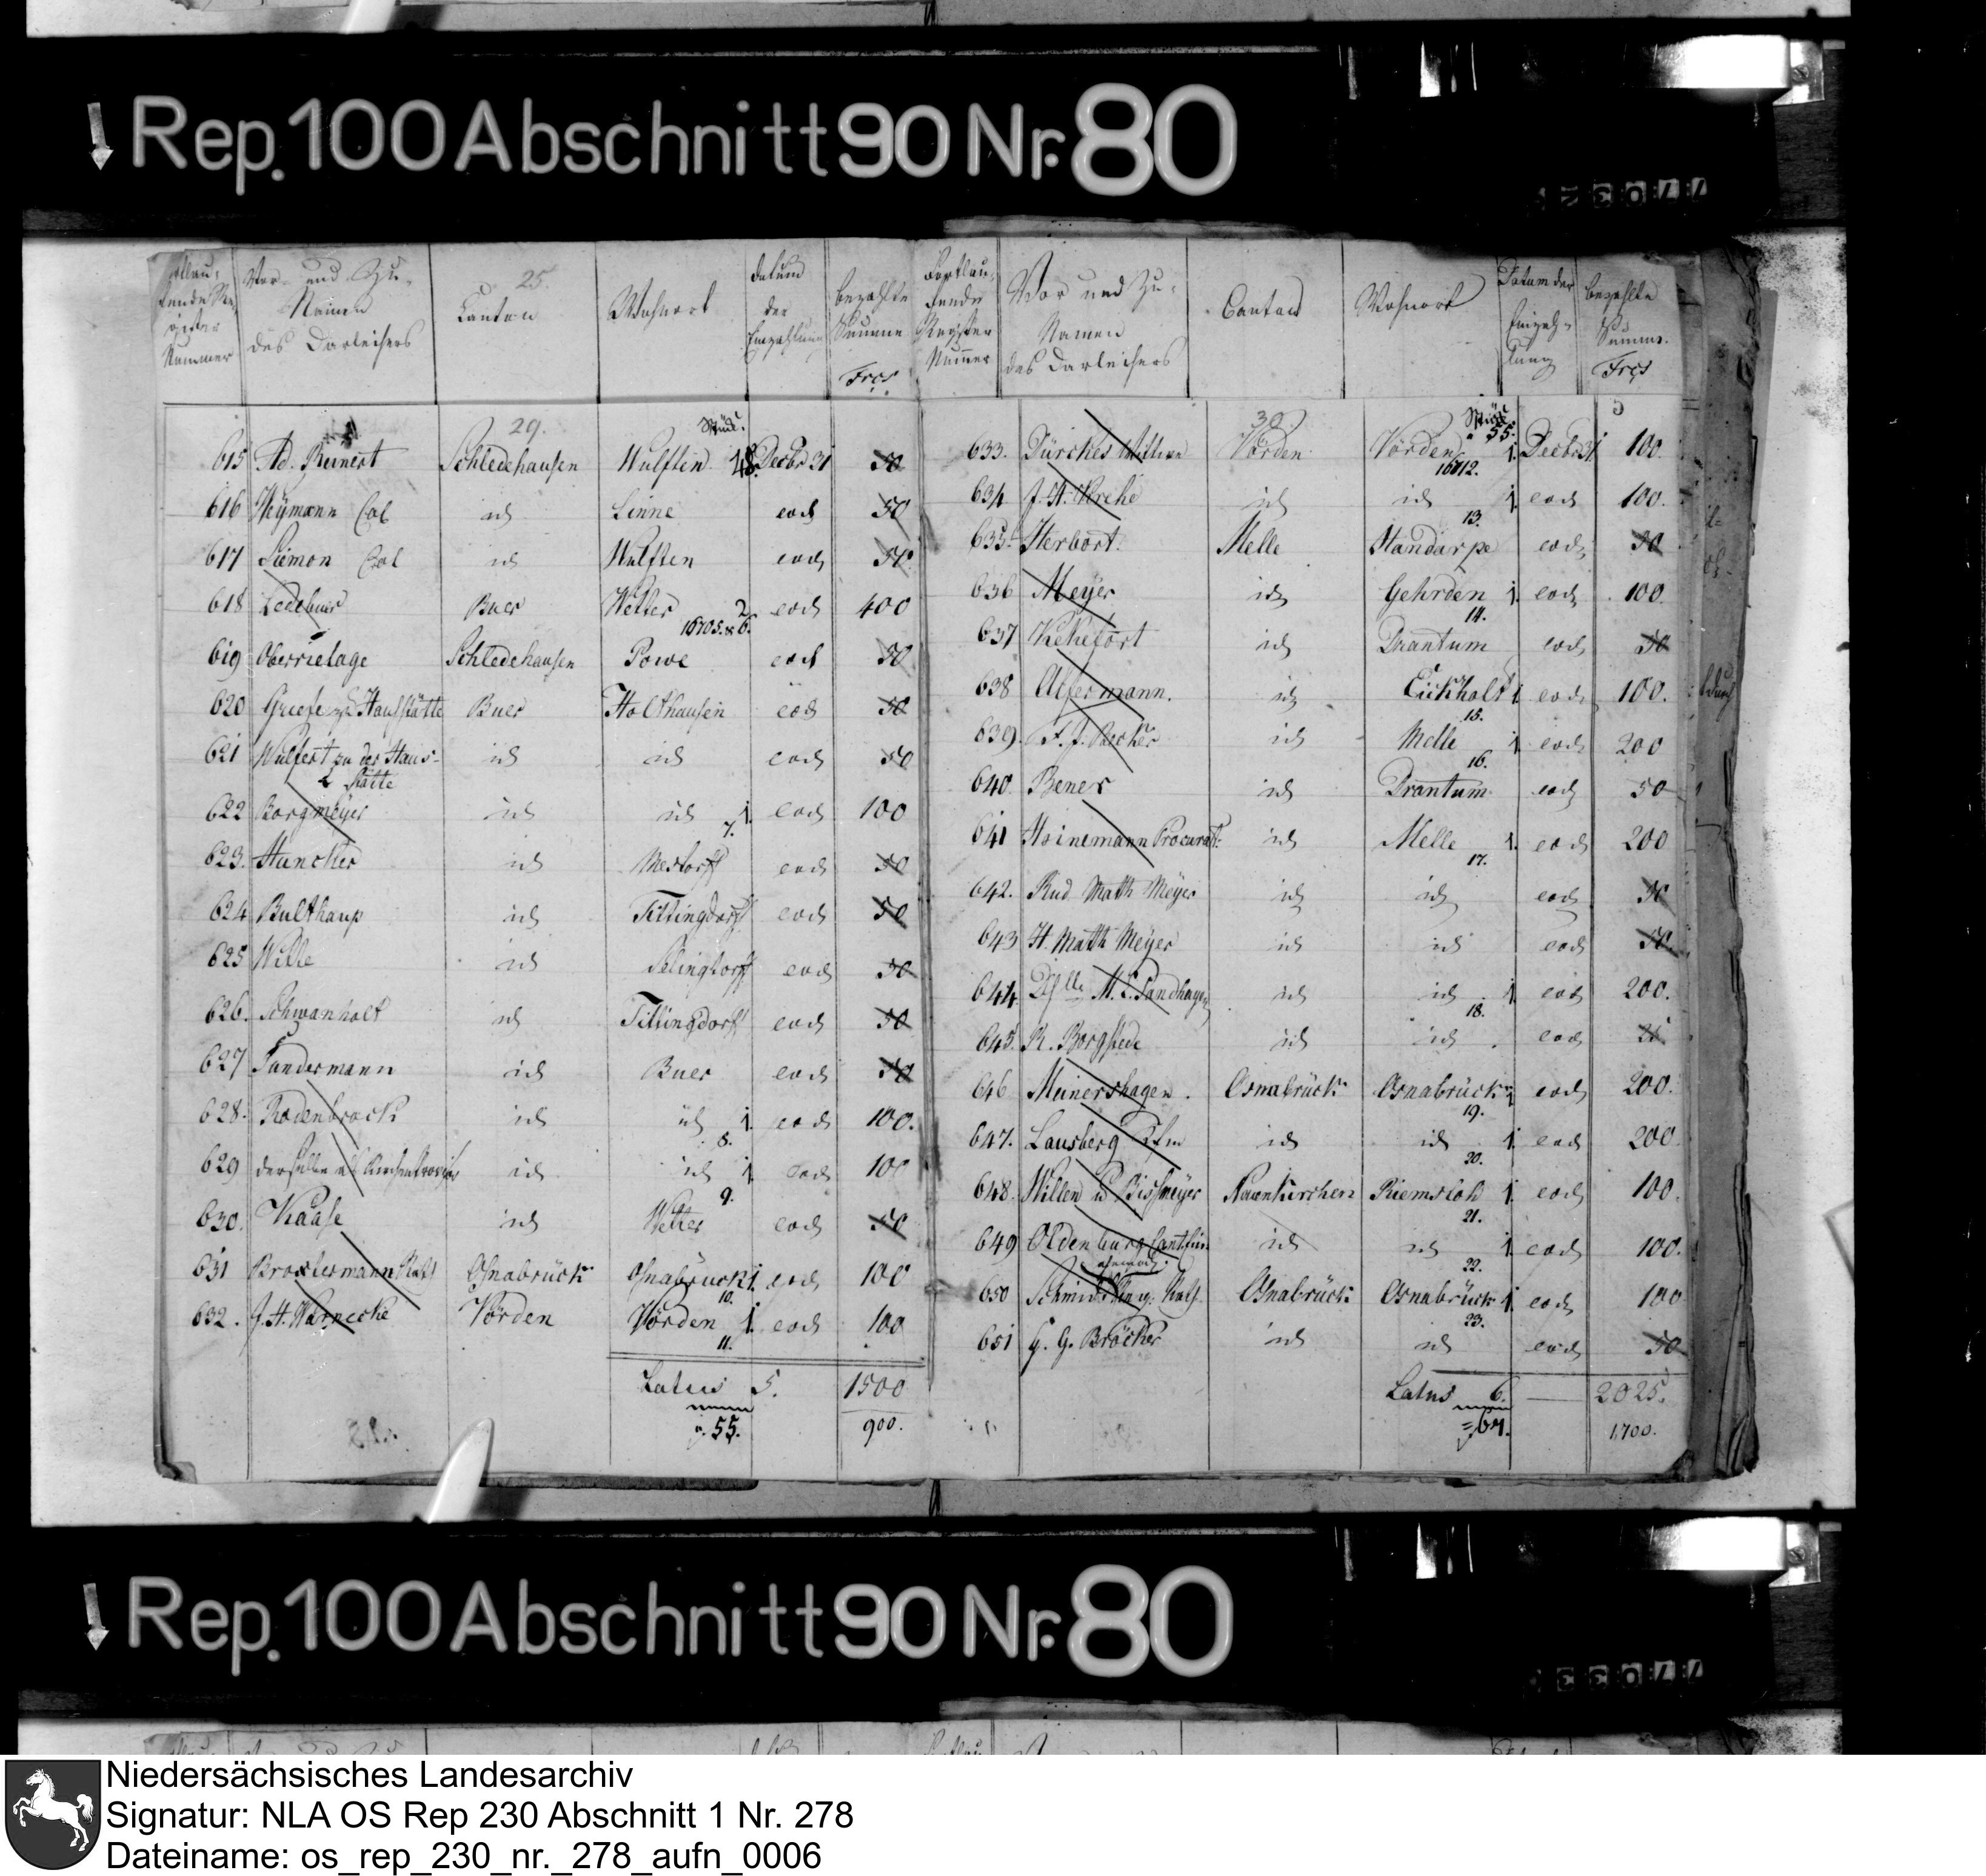 Rep. 100 Abschnitt 90 Nr. 80
Vor- und Zu-
Namen
des Darleihers
25.
Canton
Wohnort
Datum
der
Einzahlung
bezahlte
Summe
Frcs
29.
Stück
615 Ad. Reinert Schledehausen Wulften 48. Decbr 31 50
616 Weymann Col id Linne eod 50
617 Siemon Col id Wulften eod 50
618 Ledebuer Buer Wetter 2 eod 400
16705. & 6.
619 Oberrielage Schledehausen Powe eod 50
620 Griese Hausstätte Buer Holthausen eod 50
621 Wulfert zu der Haus- id id eod 50
stätte
622 Borgmeyer id id 1. eod 100
7.
623. Huncker id Westorff eod 50
624 Bulthaup id Tittingdorff eod 50
625 Wille id eod 50
626. Schwanholt id Tittingdorff eod 50
627 Sandermann id Buer eod 50
628. Rodenbrock id id 1. eod 100.
8.
629 derselbe id id 1. eod 100
9.
630. Haase id Wetter eod 50
631 Brostermann Osnabrück Osnabrück 1. eod 100
10.
632. J. H. Warnecke Vörden Vörden 1. eod 100
11.
Latus 5. 1500
55. 900.
Fortlau-
fende
Register
Numer
Vor und Zu-
Namen
des Darleihers
Canton
Wohnort
Datum der
Einzah-
lung
bezahlte
Summe.
Frcs
30
Stück
55.
633. Dürckes Wittwe Vörden Vörden 1. Decbr 31 100
16712.
634 J. H. id id 1. eod 100.
13.
635. Herbort. Melle Handarpe eod 50
636 Meyer id Gehrden 1. eod 100
14.
637 id Drantum eod 50
638 Alfermann. id Eickholt 1. eod 100.
15.
639. F. J. Becker id Melle 1. eod 200
16.
640. Bener id Drantum eod 50
641 Heinemann Procurat: id Melle 1. eod 200
17.
642. Rud Math Meyer id id eod 50
643 H. Math Meyer id id eod 50
644 M. L. Sandhagen id id 1. eod 200.
18.
645. R. Borgstede id id eod 25.
646 Meinershagen. Osnabrück Osnabrück 1. eod 200.
19.
647. Lausberg id id 1. eod 200
20.
648. Willen u Bissmeyer Neuenkirchen Riemsloh 1. eod 100.
21.
649 Oldenburg id id 1. eod 100.
22.
650 Osnabrück Osnabrück 1. eod 100
23.
651 G. G. Bröcker id id eod 50
Latus 6. 2025.
64. 1,700.
Rep. 100 Abschnitt 90 Nr. 80
Niedersächsisches Landesarchiv
Signatur: NLA OS Rep 230 Abschnitt 1 Nr. 278
Dateiname: os_rep_230_nr._278_aufn_0006